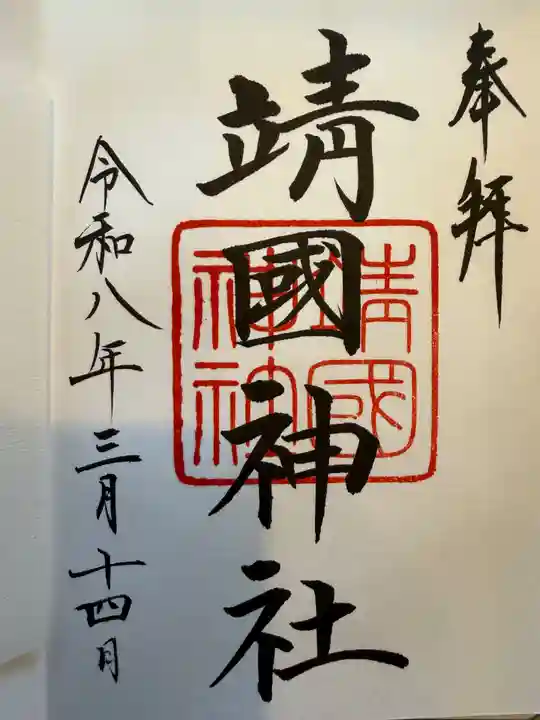 奉拜
靖國神社
靖國神社
令和八年三月十四日